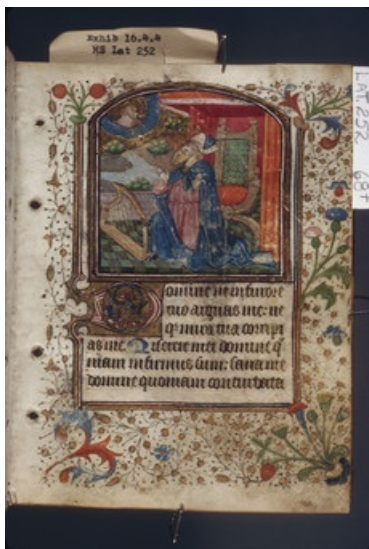 Exhib 16.4.4
MS Lat 252
LAT.252 68r
Domine ne in furore
tuo arguas me: ne
q in ira tua corripi
as me. Miserere mei domine q
niam infirmus sum: sana me
domine quoniam conturbata